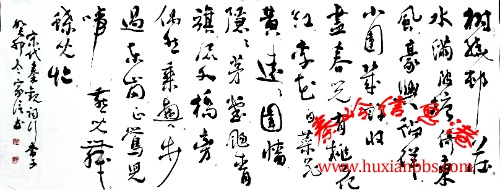 树绕邨庄
水满陂塘倚东
风豪兴徜徉
小园几许收
尽春光有桃花
红李花白菜花
黄远远围墙
隐隐茅堂飏青
旗流水桥旁
偶然乘兴步
过东岗正莺儿
啼燕儿舞
蝶儿忙
宋代秦观词行香子
癸卯冬
秦岭信息港
www.huxianbbs.com